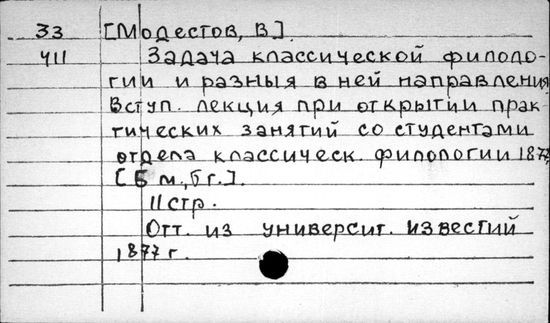 33 [Модестов, В].
411 Задача классической филоло-
гии и разныя в ней направления.
Вступ. лекция при открытии прак-
тических занятий со студентами
отдела классическ. филологии 1877,
[Б м., б г.].
11 стр.
Отт. из университ. известий
1877 г.